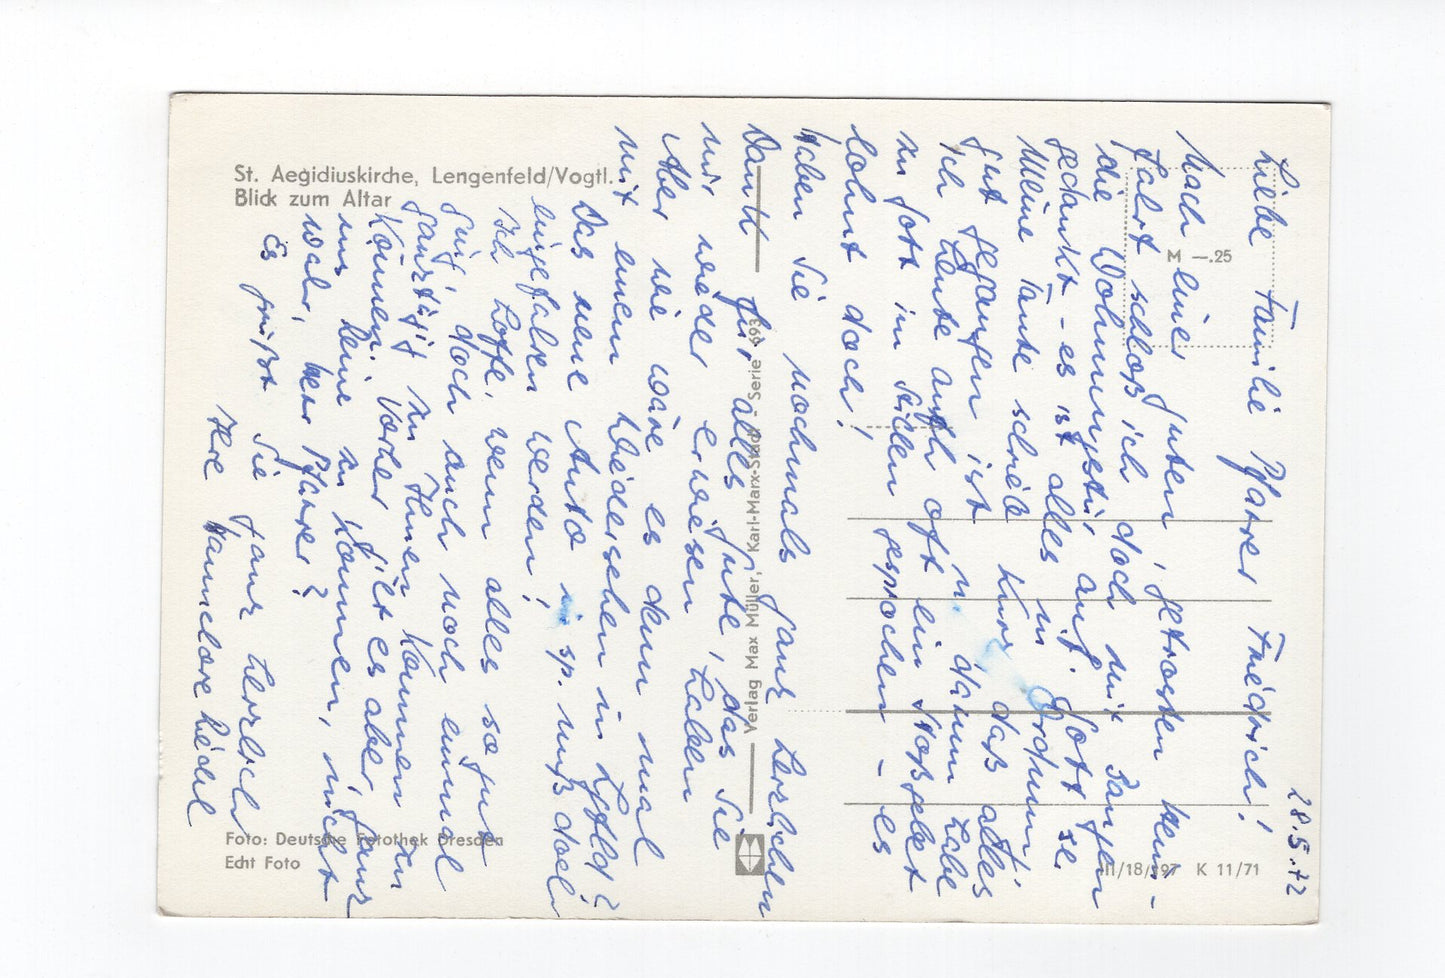 St. Aegidiuskirche, Lengenfeld/Vogtl.
Blick zum Altar
M —.25
Verlag Max Müller, Karl-Marx-Stadt - Serie 693
Foto: Deutsche Fotothek Dresden
Echt Foto
III/18/197 K 11/71
28.5.72
Liebe Familie Pfarrer Friedrich!
Nach einer guten, getrosten Heim-
fahrt schloß ich doch mit Bangen
die Wohnungstür auf. Gott sei
gedankt - es ist alles in Ordnung!
Meine Tante schrieb kurz, daß alles
gut gegangen ist. Ja, darum habe
ich heute auch oft ein Stoßgebet
zu Gott im Stillen gesprochen - es
lohnt doch!
Haben Sie nochmals ganz herzlichen
Dank für alles Gute, das Sie
mir wieder erwiesen haben
Aber wie wäre es denn mal
mit einem Wiedersehen in Lgfld?
Das neue Auto sp. muß doch
eingefahren werden!
Ich hoffe, wenn alles so gut
geht, doch auch noch einmal
ganztägig zu Ihnen kommen zu
können. Vorher gilt es aber, ganz
zu können, nicht
wahr, Herr Pfarrer?
Es grüßt Sie ganz herzlich
Ihre Hannelore Liedel